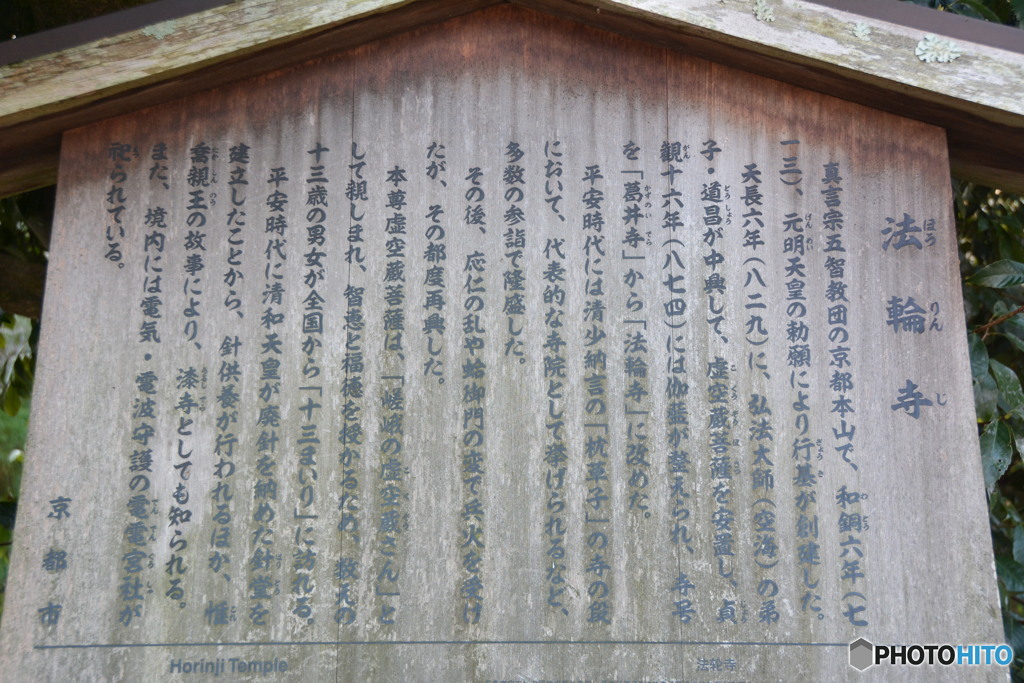 法輪寺
ほうりんじ
真言宗五智教団の京都本山で、和銅六年(七
一三)、元明天皇の勅願により行基が創建した。
天長六年(八二九)に、弘法大師(空海)の弟
子・道昌が中興して、虚空蔵菩薩を安置し、貞
観十六年(八七四)には伽藍が整えられ、寺号
を「葛井寺」から「法輪寺」に改めた。
平安時代には清少納言の「枕草子」の寺の段
において、代表的な寺院として挙げられるなど、
多数の参詣で隆盛した。
その後、応仁の乱や蛤御門の変で兵火を受け
たが、その都度再興した。
本尊虚空蔵菩薩は、「嵯峨の虚空蔵さん」と
して親しまれ、智恵と福徳を授かるため、数え
十三歳の男女が全国から「十三まいり」に訪れる。
平安時代に清和天皇が廃針を納めた針堂を
建立したことから、針供養が行われるほか、惟
喬親王の故事により、漆寺としても知られる。
また、境内には電気・電波守護の電電宮社が
祀られている。
京都市
Horinji Temple
法轮寺
PHOTOHITO